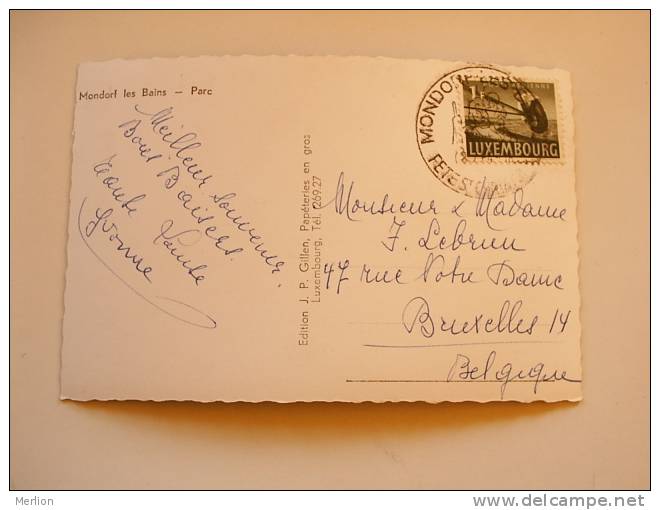 Mondorf les Bains – Parc
Meilleur souvenir.
Bons Baisers
Tante
Yvonne
Edition J. P. Gillen, Papéteries en gros
Luxembourg, Tél. 269.27
MONDORF
FETES
1 F
LUXEMBOURG
Monsieur & Madame
J. Lebrun
47 rue Notre Dame
Bruxelles 14
Belgique
Merlion
http://www.delcampe.net